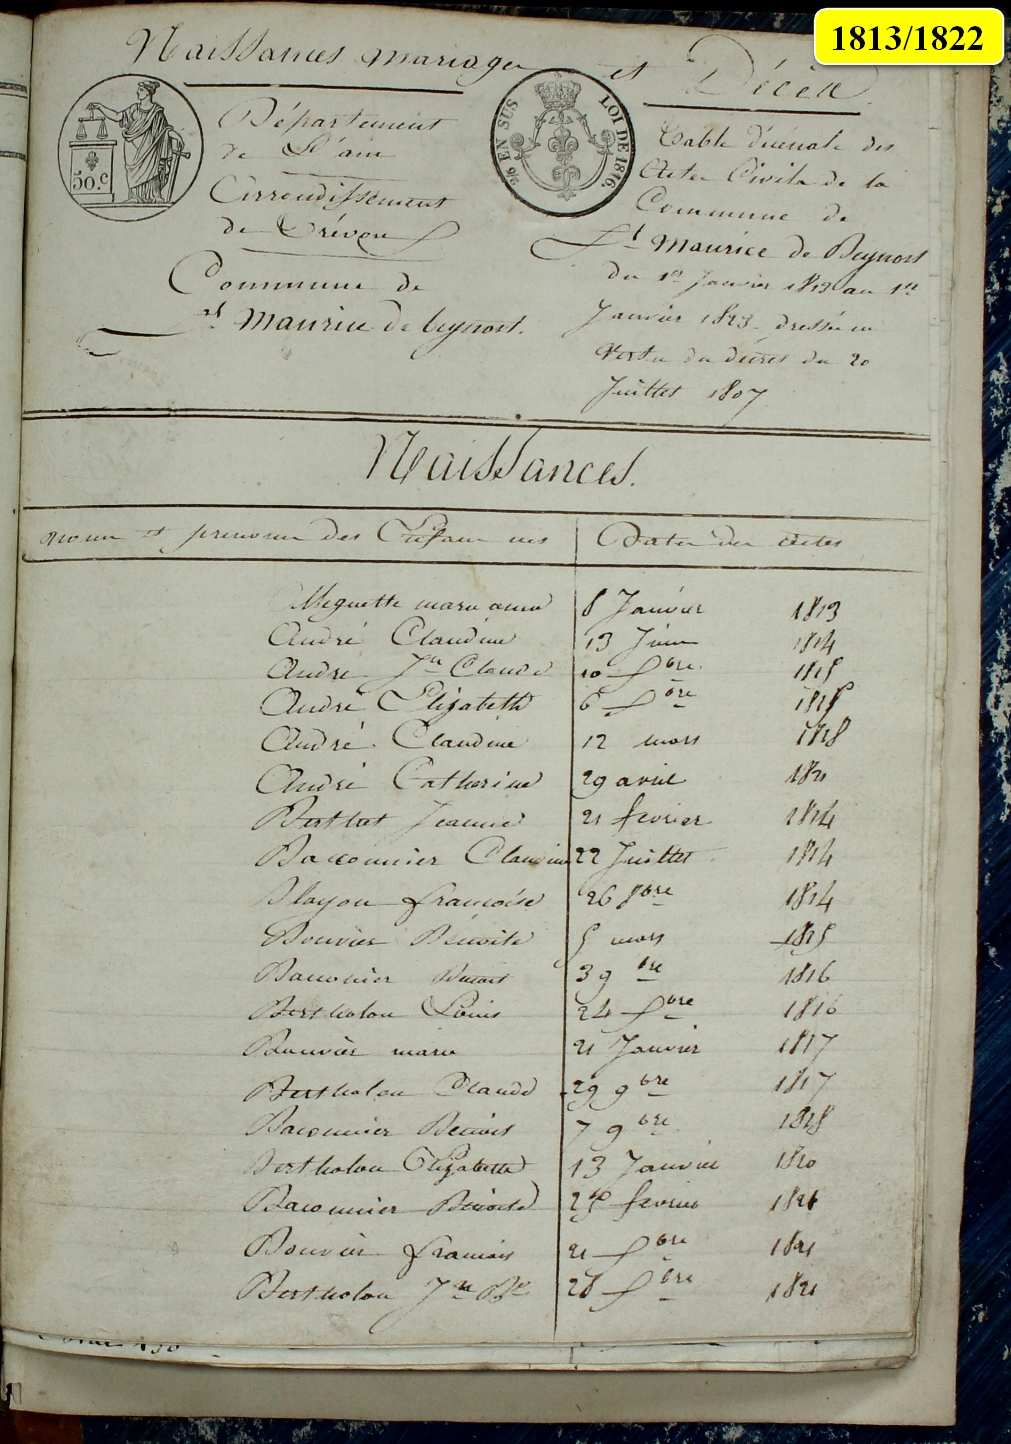 1813/1822
Naissances mariages et Décès
50.c
2/6 EN SUS LOI DE 1816.
Département
de L'ain
Arrondissement
de Trévoux
Commune de
st Maurice de beynost.
Table décennale des
Actes Civils de la
Commune de
St Maurice de Beynost
du 1er Janvier 1813 au 1er
Janvier 1823 dressée en
vertu du décret du 20
Juillet 1807
Naissances.
noms et prenoms des Enfans nés | Dates des actes
Meguette marie anne 8 Janvier 1813
André Claudine 13 Juin 1814
André Jn Claude 10 bre 1815
André Elizabeth 6 bre
André Claudine 12 mars 1818
André Catherine 29 avril 1821
Berthet Jeanne 21 fevrier 1814
Baconnier Claudine 22 Juillet 1814
Blayon françoise 26 8bre 1814
Bouvier Benoite 5 mars 1815
Baconnier Benoit 3 9bre 1816
Bertholon Louis 24 bre 1816
Bouvier marie 21 Janvier 1817
Bertholon Claude 29 9bre 1817
Baconnier Benoit 7 9bre 1818
Bertholon Elizabeth 13 Janvier 1820
Baconnier Benoite fevrier
Bouvier francois 21 bre 1821
Bertholon 28 bre 1821